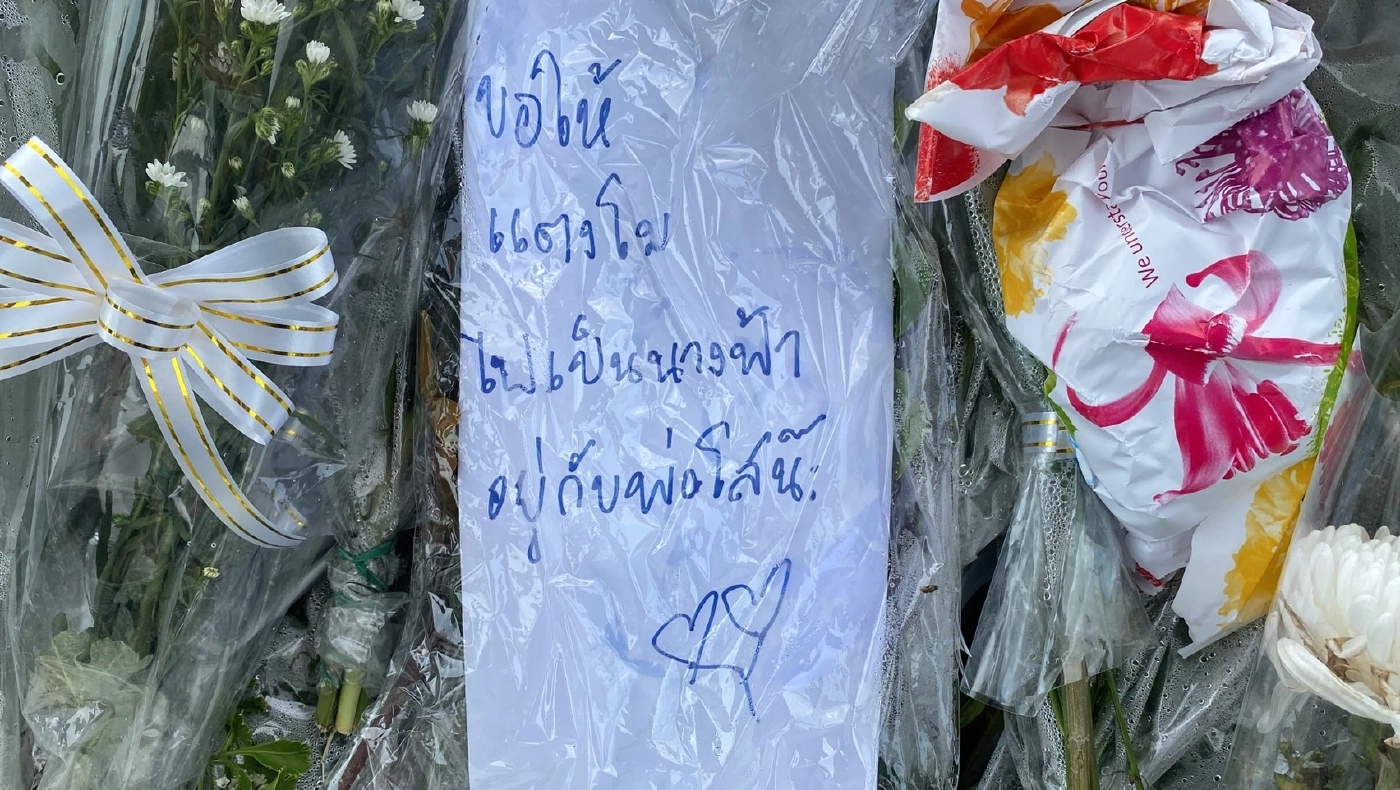 ขอให้
แตงโม
ไปเป็นนางฟ้า
อยู่กับพ่อโสน๊ะ
We
you